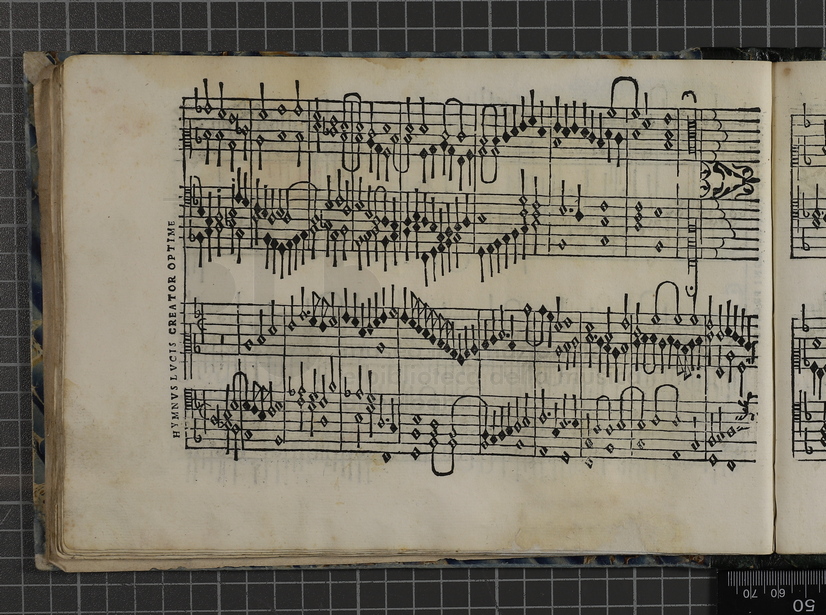 HYMNVS LVCIS CREATOR OPTIME
70
60
50